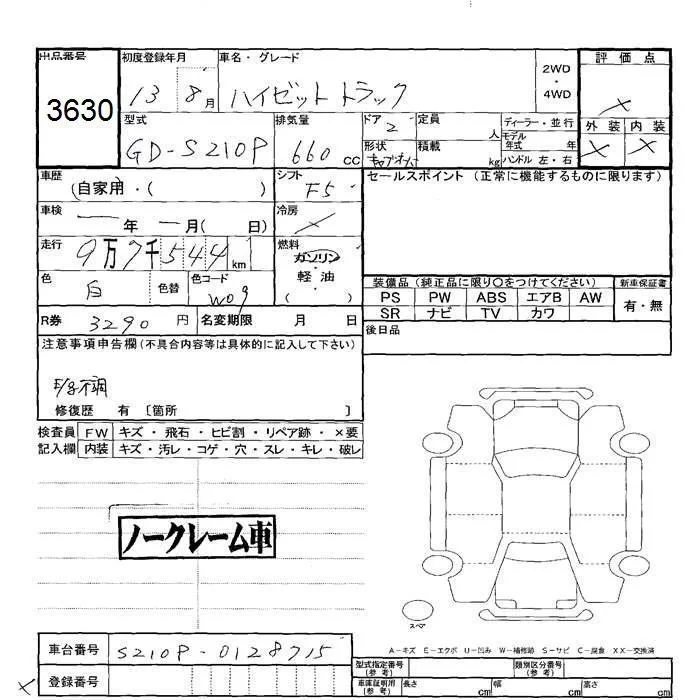 出品番号 初度登録年月 車名・グレード 2WD・4WD 評価点
3630 13 8月 ハイゼットトラック ×
型式 排気量 ドア 2 定員 人 ディーラー・並行 外装 内装
GD-S210P 660 cc 形状 積載 kg モデル年式 年 × ×
ハンドル 左・右
車歴 (自家用・( ) シフト F5 セールスポイント (正常に機能するものに限ります)
車検 年 月( 日) 冷房 ×
走行 9万7千544km 燃料 ガソリン 軽油 ( )
色 白 色替 色コード W09 装備品 (純正品に限り○をつけてください) 新車保証書
PS PW ABS エアB AW 有・無
SR ナビ TV カワ
R券 3290 円 名変期限 月 日 後日品
注意事項申告欄(不具合内容等は具体的に記入して下さい)
E/g不調
修復歴 有 〔箇所 〕
検査員 FW キズ・飛石・ヒビ割・リペア跡・×要
記入欄 内装 キズ・汚レ・コゲ・穴・スレ・キレ・破レ
ノークレーム車
スペア
A-キズ E-エクボ U-凹み W-補修跡 S-サビ C-腐食 XX-交換済
車台番号 S210P-0128715 型式指定番号(参考) 類別区分番号(参考)
× 登録番号 車庫証明用(参考) 長さ cm 幅 cm 高さ cm